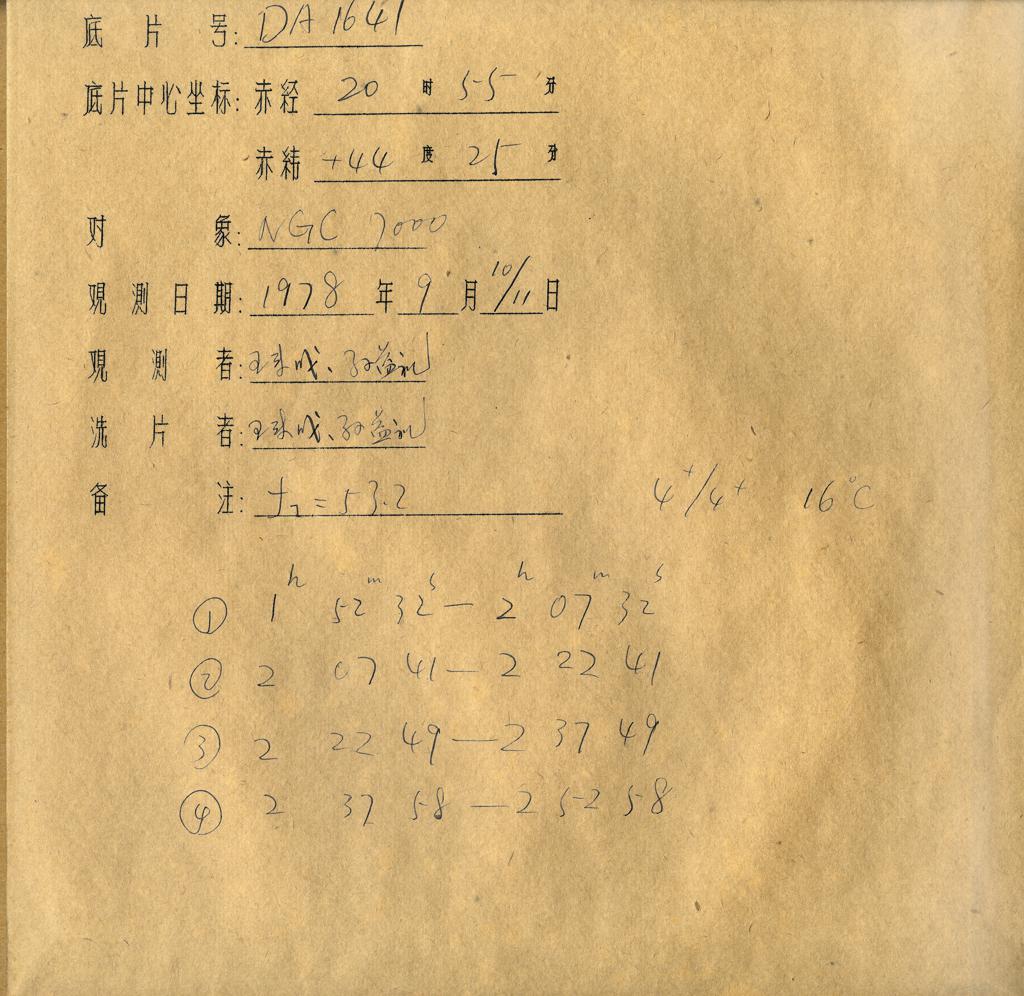 底片号: DA 1641
底片中心坐标: 赤经 20 时 55 分
赤纬 +44 度 25 分
对象: NGC 7000
观测日期: 1978 年 9 月 10/11 日
观测者: 王珠成、孙益礼
洗片者: 王珠成、孙益礼
备注: t₂ = 53.2 4⁺/4⁺ 16°C
h m s h m s
① 1 52 32 — 2 07 32
② 2 07 41 — 2 22 41
③ 2 22 49 — 2 37 49
④ 2 37 58 — 2 52 58